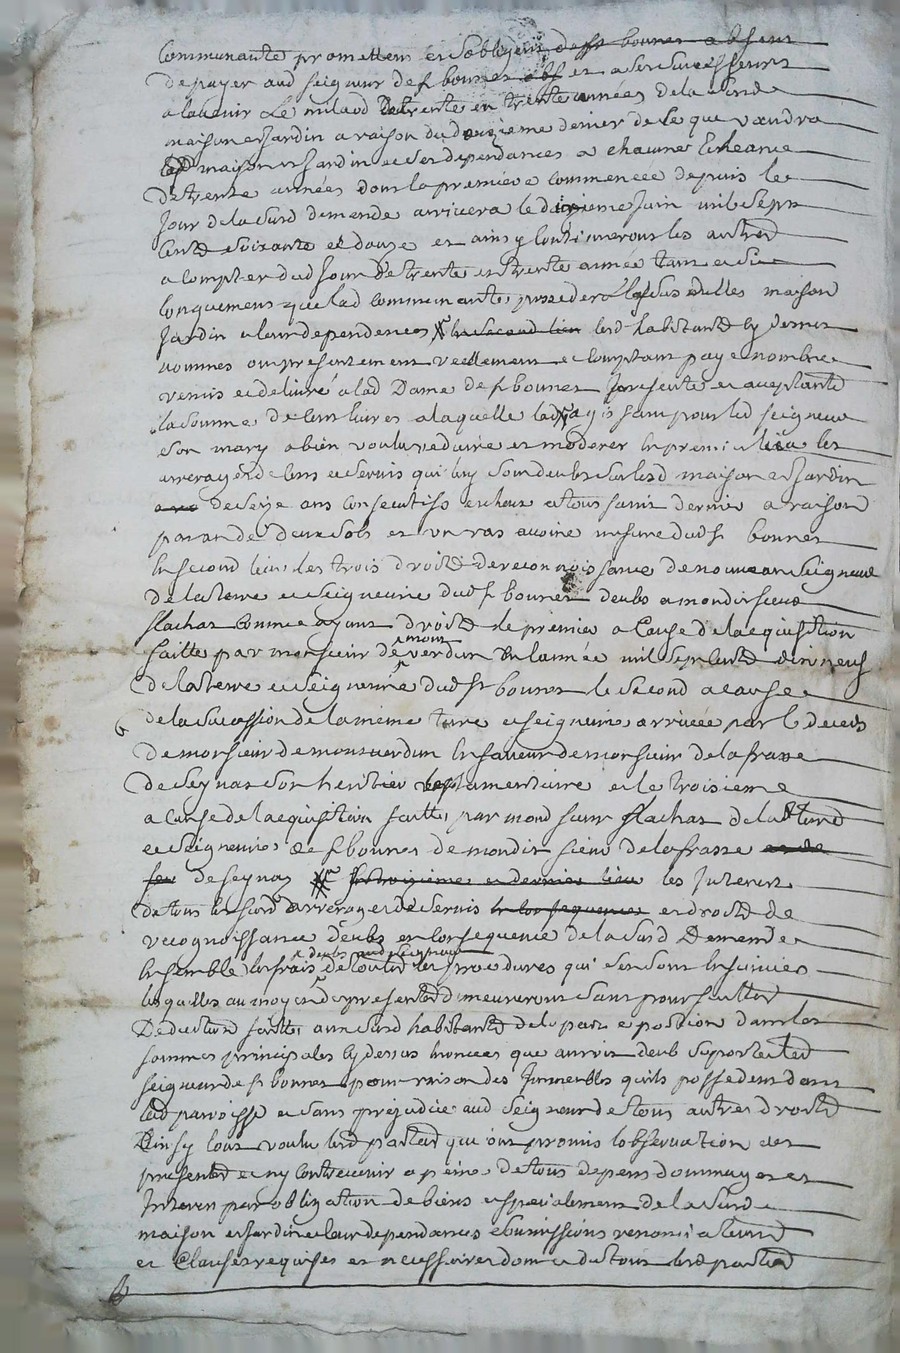 Communauté promettent et sobligent
de payer aud seigneur de st bonnet et a ses successeurs
a ladvenir Le milaod de trente en trente années de la susd
maison et Jardin a raison du denier de Ce que vaudra
lad maison et Jardin et ses dependances a chacune Echeance
de trente années dont la premiere commencée depuis le
jour de la susd demande arrivera le Juin mil sept
Cents soixante et douze et ainsy Continueront les autres
a Compter dud Jour de trente en trente année tant et sy
longuement que lad communauté possedera maison
Jardin et leur dependences le second lieu lesd habitants cy dessus
nommes ont presentement reellement et Comptant payé nombré
remis et delivré a lad Dame de st bonnet presente et acceptante
la somme de Cent livres a laquelle lad agissant pour led seigneur
son mary a bien voulu reduire et moderer En premier lieu les
arrerages de Cens et servis qui luy sont deubs sur lesd maison et Jardin
de seize ans Consecutifs echeus a tous saints dernier a raison
par an de deux sols et un ras avoine mesure dud st bonnet
En second lieu les trois droits de reconnoissance de nouveau seigneur
de la terre et seigneurie dud st bonnet deubs a mondit sieur
flachat Comme ayant droit le premier a Cause de l acquisition
faitte par monsieur de mont verdun En lannée mil sept cents dix neuf
de la terre et seigneurie dud st bonnet le second a cause
de la succession de la meme terre et seigneurie arrivée par le deceds
de monsieur de montverdun En faveur de monsieur de la frasse
de seynas son heritier testamentaire et le troisieme
a Cause de l acquisition faitte par mond sieur flachat de la terre
et seigneurie de st bonnet de mondit sieur de la frasse
de seynas le troisieme et dernier lieu les Interets
de tous lesd arrerages de servis en consequence et droits de
recognoissance deubs en Consequence de la susd Demande
Ensemble les frais deubs aud seigneur de toutes les procedures qui sen sont Ensuivies
lesquelles au moyen des presentes demeureront sans poursuitte
Deduction faitte aux susd habitants de la part et portion dans les
sommes principales cy dessus enoncées que auroit deub supporter led
seigneur de st bonnet pour raison des Immeubles quils possedent dans
lad paroisse et sans prejudice aud seigneur de tous autres droits
Ainsy lont voulu lesd parties qui ont promis lobservation des
presentes et ny Contrevenir a peine de tous depens dommages et
Interets par obligation de biens et specialement de la susd
maison et Jardin et leur dependances soumissions renonciations
et Clauses requises et necessaires dont et du tout lesd parties